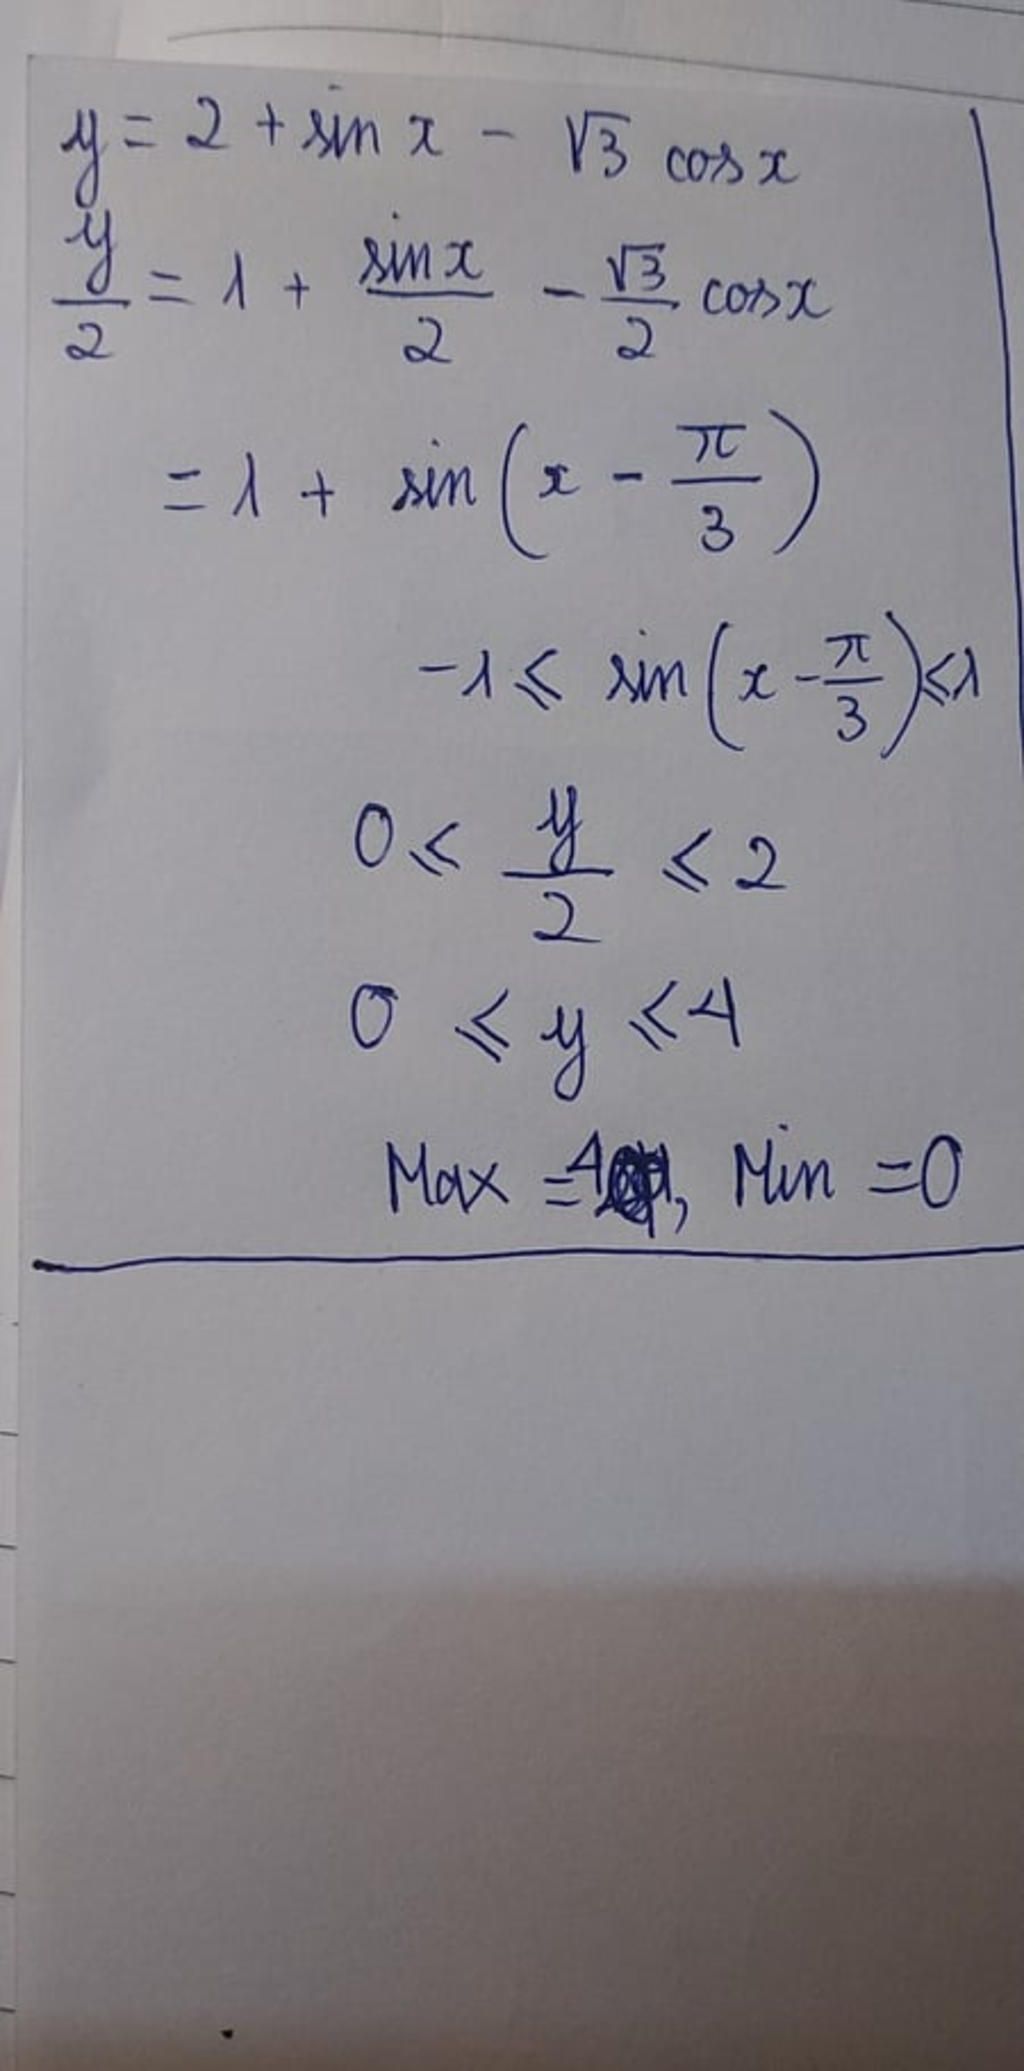 y = 2 + sin x - √3 cos x
y/2 = 1 + sin x/2 - √3/2 cos x
= 1 + sin(x - π/3)
-1 ≤ sin(x - π/3) ≤ 1
0 ≤ y/2 ≤ 2
0 ≤ y ≤ 4
Max = 4, Min = 0